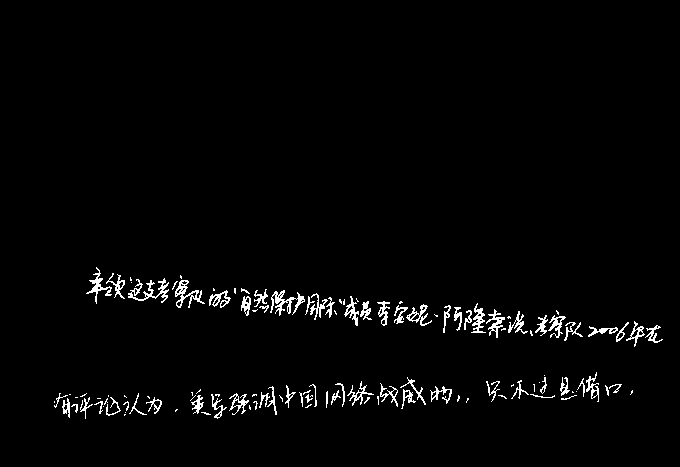 率领这支考察队的“自然保护国际”成员李安妮·阿隆索说,考察队2006年在
有评论认为,美导强调中国网络战威胁,,只不过是借口,